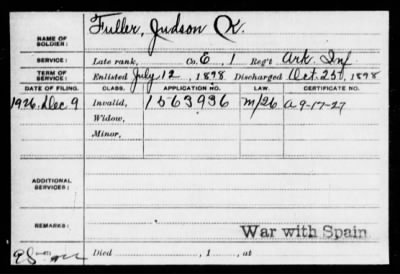 NAME OF SOLDIER: Fuller, Judson K.
SERVICE: Late rank, Co. E, 1 Reg't Ark. Inf
TERM OF SERVICE: Enlisted July 12, 1898 Discharged Oct. 25, 1898
DATE OF FILING. CLASS. APPLICATION NO. LAW. CERTIFICATE NO.
1926, Dec 9 Invalid, 1563936 m/26 a 9-17-27
Widow,
Minor,
ADDITIONAL SERVICES:
REMARKS:
War with Spain
Died , 1 , at